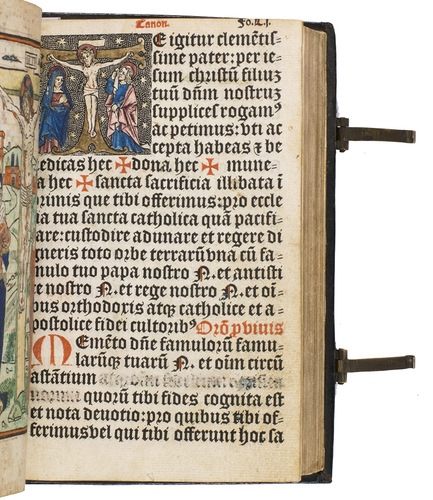 Canon. Fo. L.j.
E igitur clemētis=
sime pater: per ie=
sum christū filiuȝ
tuū dn̄m nostruȝ
supplices rogam⁹
ac petimus: vti ac
cepta habeas ⁊ be
nedicas hec ✠ dona hec ✠ mune=
ra hec ✠ sancta sacrificia illibata ī
primis que tibi offerimus: pro eccle
sia tua sancta catholica quā pacifi=
care: custodire adunare et regere di
gneris toto orbe terrarū vna cū fa=
mulo tuo papa nostro N. et antisti
te nostro N. et rege nostro N. et oī=
bus orthodoxis atqȝ catholice et a=
postolice fidei cultorib⁹ Orō p viuis
Memēto dn̄e famulorū famu=
larūqȝ tuarū N. et oīm circū
astātium
quorū tibi fides cognita est
et nota deuotio: pro quibus tibi of=
ferimus vel qui tibi offerunt hoc sa